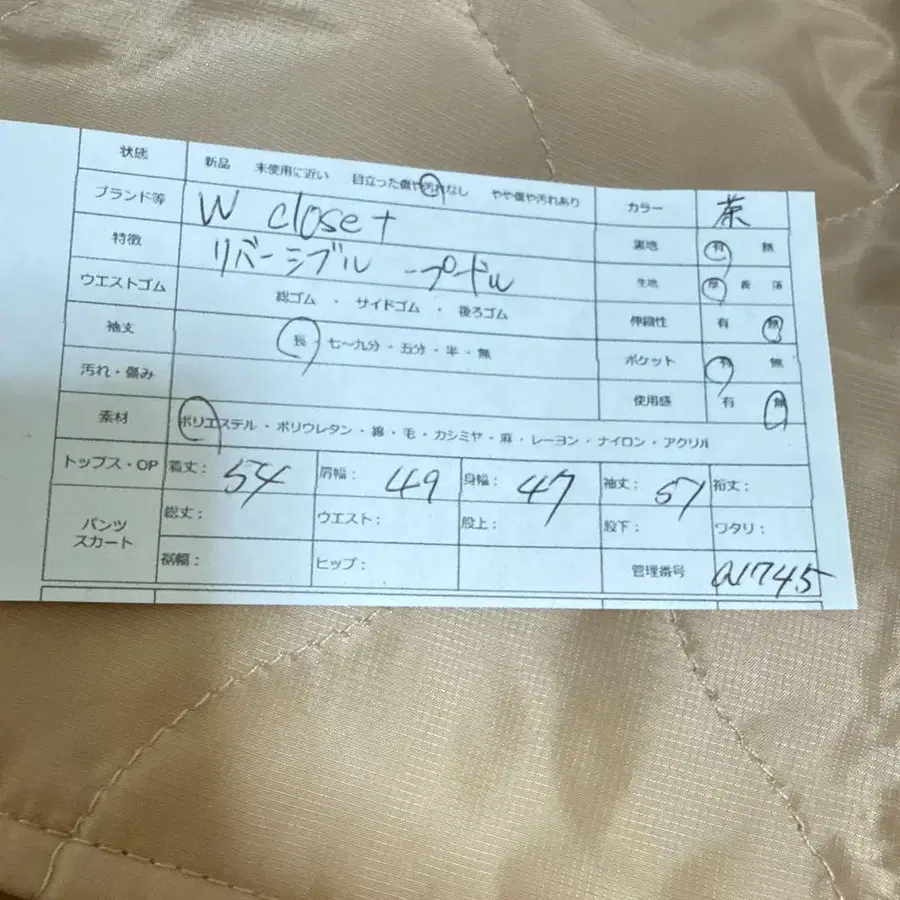 状態 新品 未使用に近い 目立った傷や汚れなし やや傷や汚れあり カラー 茶
ブランド等 W closet 裏地 有 無
特徴 リバーシブル プードル 生地 厚 普 薄
ウエストゴム 総ゴム ・ サイドゴム ・ 後ろゴム 伸縮性 有 無
袖丈 長・七〜九分・五分・半・無 ポケット 有 無
汚れ・傷み 使用感 有 無
素材 ポリエステル・ポリウレタン・綿・毛・カシミヤ・麻・レーヨン・ナイロン・アクリル
トップス・OP 着丈: 54 肩幅: 49 身幅: 47 袖丈: 57 裄丈:
パンツ スカート 総丈: ウエスト: 股上: 股下: ワタリ:
裾幅: ヒップ: 管理番号 a1745